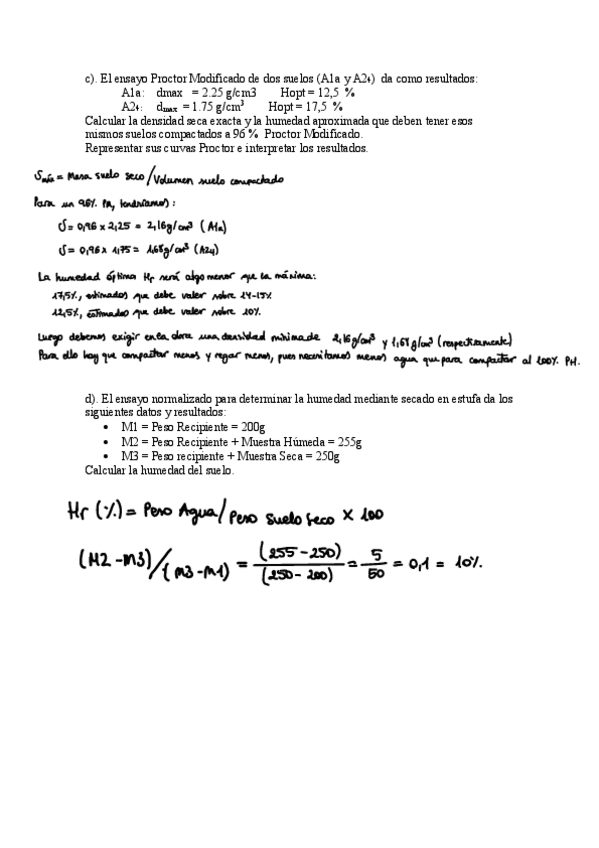 c). El ensayo Proctor Modificado de dos suelos (A1a y A24) da como resultados:
A1a: dmax = 2.25 g/cm3 Hopt = 12,5 %
A24: dmax = 1.75 g/cm³ Hopt = 17,5 %
Calcular la densidad seca exacta y la humedad aproximada que deben tener esos
mismos suelos compactados a 96 % Proctor Modificado.
Representar sus curvas Proctor e interpretar los resultados.
δmáx = Masa suelo seco/Volumen suelo compactado
Para un 96% PM, tendríamos:
δ = 0,96 x 2,25 = 2,16 g/cm³ (A1a)
δ = 0,96 x 1,75 = 1,68 g/cm³ (A24)
La humedad óptima Hr será algo menor que la máxima:
17,5%, estimados que debe valer sobre 14-15%
12,5%, estimados que debe valer sobre 10%.
Luego debemos exigir en la obra una densidad mínima de 2,16 g/cm³ y 1,68 g/cm³ (respectivamente)
Para ello hay que compactar menos y regar menos, pues necesitamos menos agua que para compactar al 100% PM.
d). El ensayo normalizado para determinar la humedad mediante secado en estufa da los
siguientes datos y resultados:
• M1 = Peso Recipiente = 200g
• M2 = Peso Recipiente + Muestra Húmeda = 255g
• M3 = Peso recipiente + Muestra Seca = 250g
Calcular la humedad del suelo.
Hr (%) = Peso Agua/Peso suelo seco x 100
(M2-M3)/(M3-M1) = (255-250)/(250-200) = 5/50 = 0,1 = 10%.